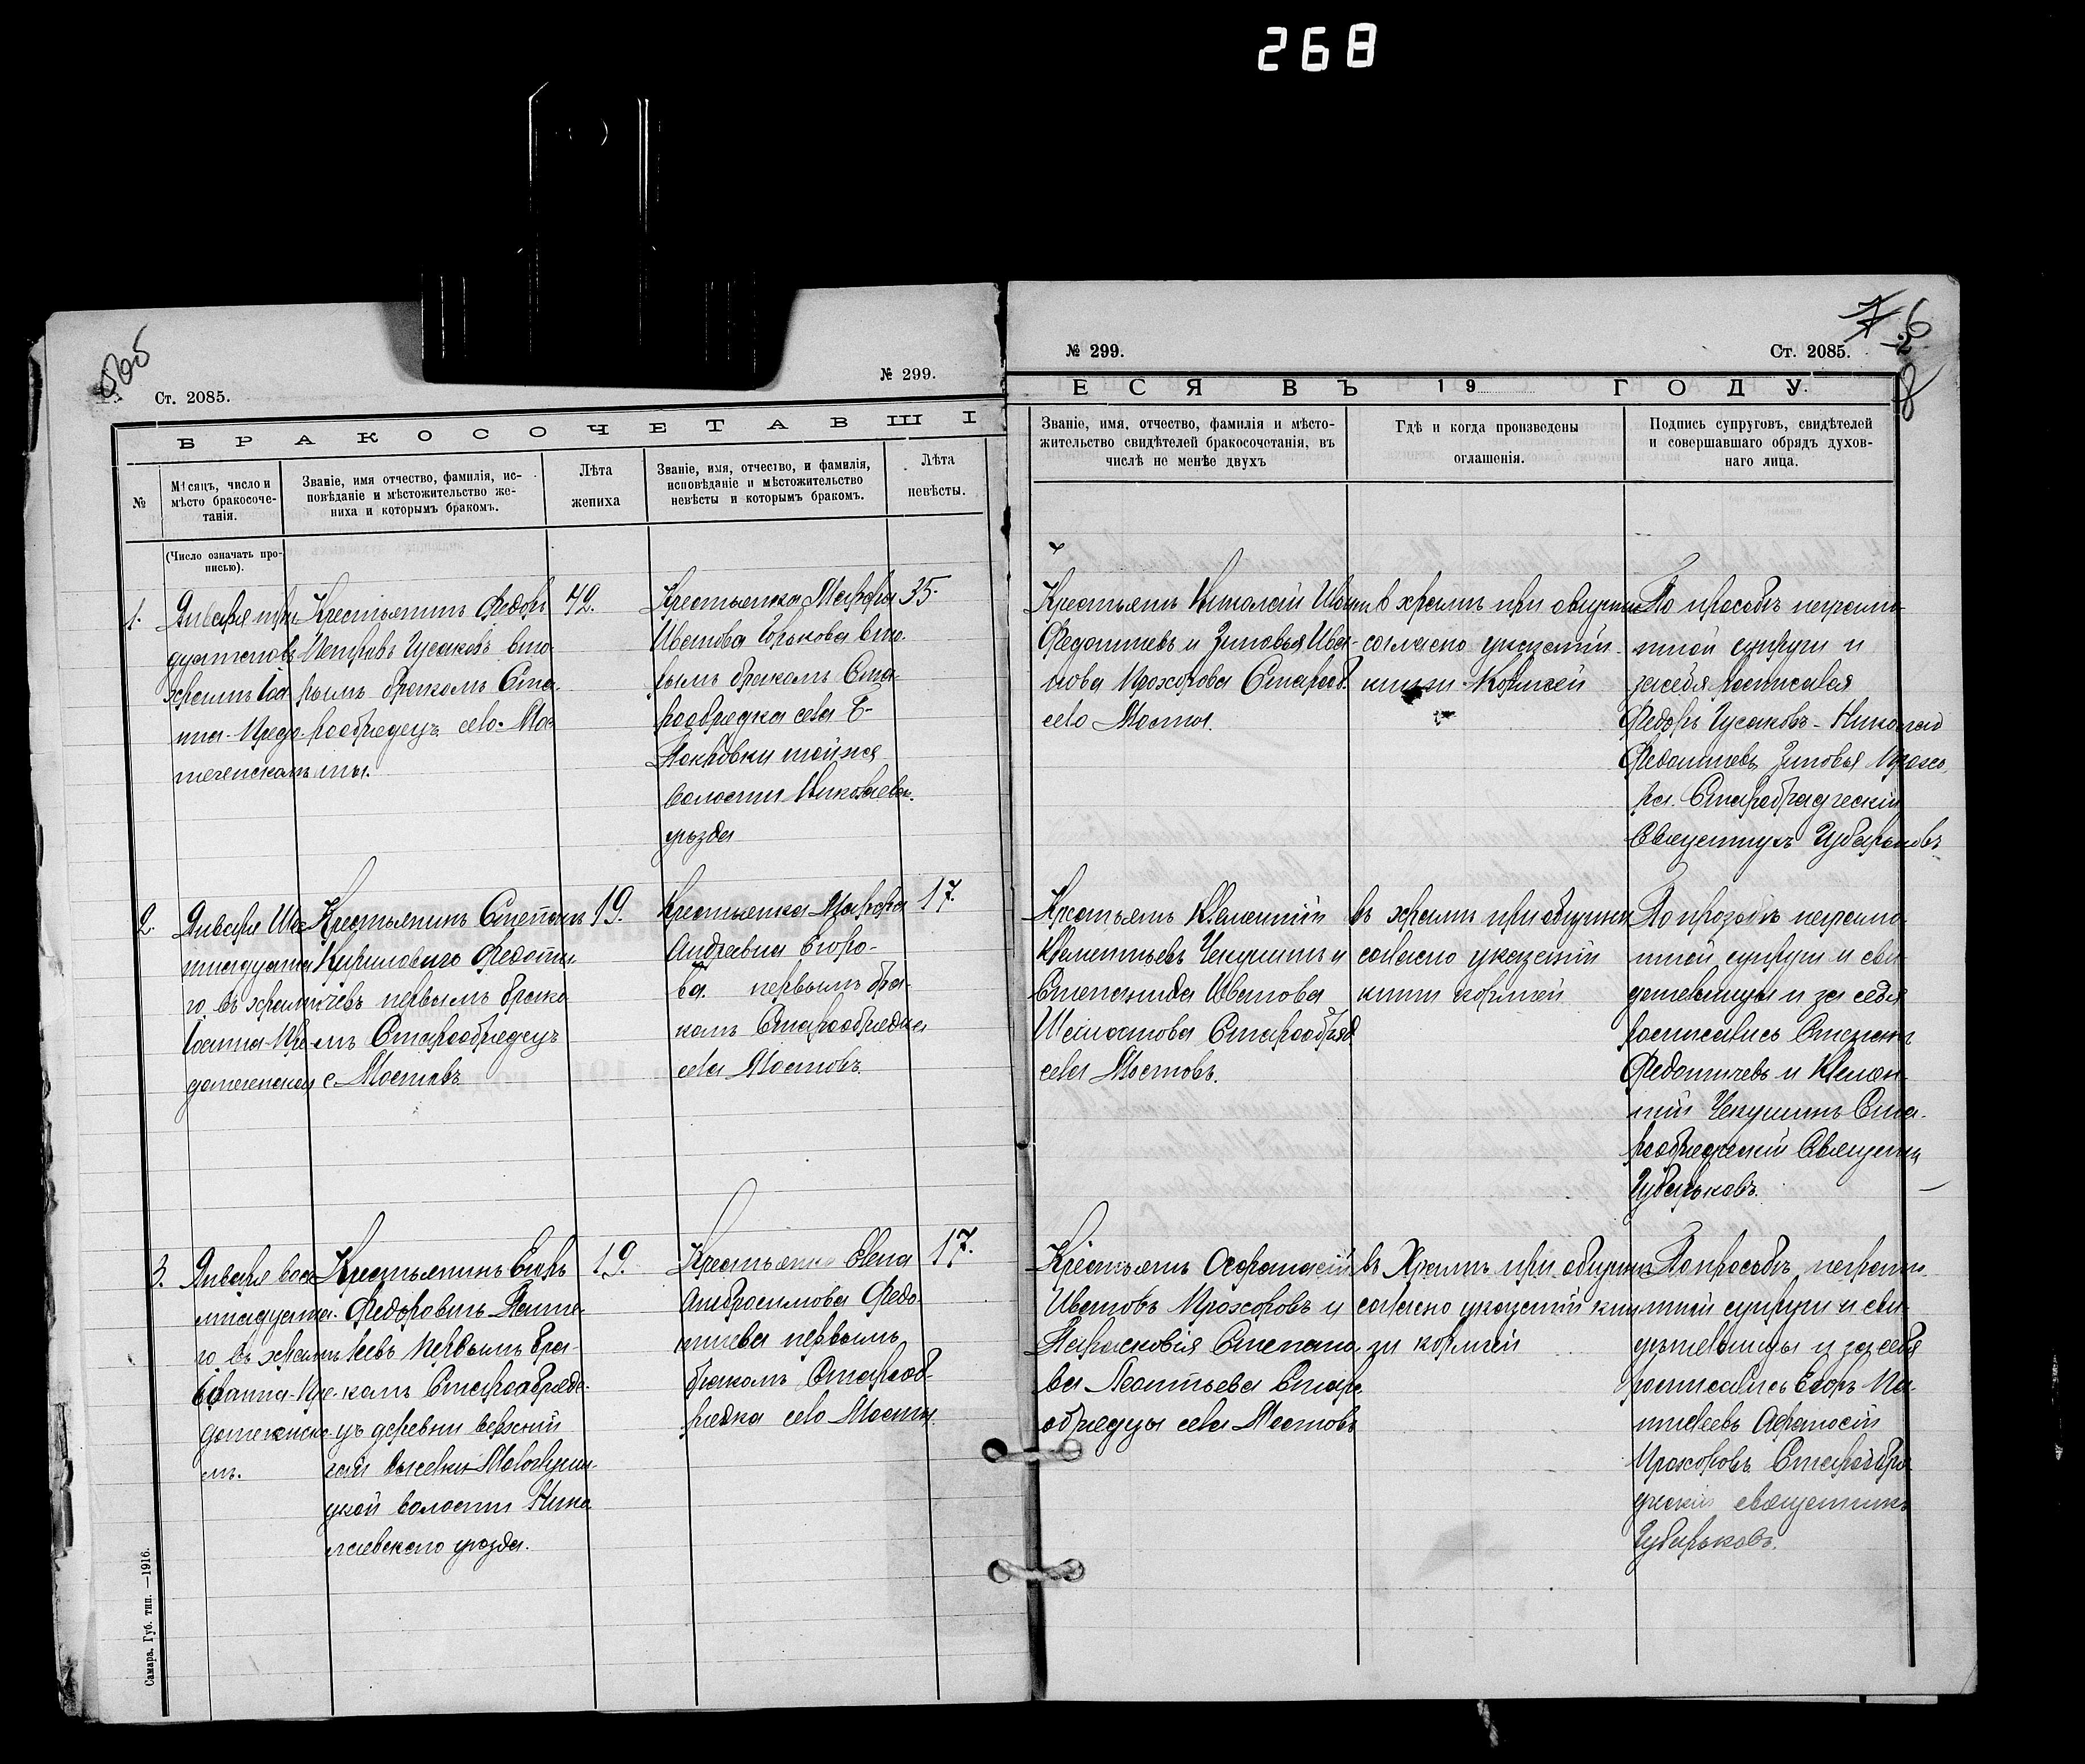 268
7 6
2
8
Ст. 2085.
№ 299.
БРАКОСОЧЕТАВШІ
№
Мѣсяцъ, число и
мѣсто бракосоче-
танія.
Званіе, имя отчество, фамилія, ис-
повѣданіе и мѣстожительство же-
ниха и которымъ бракомъ.
Лѣта
жениха
Званіе, имя, отчество, и фамилія,
исповѣданіе и мѣстожительство
невѣсты и которымъ бракомъ.
Лѣта
невѣсты.
(Число означать про-
писью).
1.
Января три
дцатого въ
храмѣ Іоа
нна-Пред
теченскомъ
Крестьянинъ Федоръ
Петровъ Гусаковъ вто
рымъ бракомъ Ста
рообрядецъ село Мос
ты.
42.
Крестьянка Марфа
Иванова Горькова вто
рымъ бракомъ Ста
рообрядка села
Покровки тойже
волости Николаевск.
уѣзда
35
2.
Января Шес
тнадцата
го въ храмѣ
Іоанна-Пре
дотеченском
Крестьянинъ Степанъ
Кириловичъ Федоти
чевъ первымъ брако
мъ Старообрядецъ
с Мостовъ
19.
Крестьянка Марфа
Андравна Егоро-
ва. первымъ бра-
комъ Старообрядка
села Мостовъ
17.
3.
Января восе
мнадцата
го въ храмѣ
Іоанна-Пре
дотеченско
мъ.
Крестьянинъ Егоръ
Федоровичъ Панте
леевъ первымъ бра-
комъ Старообряде-
цъ деревни
выселки
цкой волости Нико
лаевского уѣзда.
19.
Крестьянка Елена
Амбросимова Федо
тчева первымъ
бракомъ Старооб-
рядка село Мосты
17.
Самара. Губ. тип. —1916.
№ 299.
Ст. 2085.
ЕСЯ ВЪ 19 ГОДУ.
Званіе, имя, отчество, фамилія и мѣсто-
жительство свидѣтелей бракосочетанія, въ
числѣ не менѣе двухъ
Гдѣ и когда произведены
оглашенія.
Подпись супруговъ, свидѣтелей
и совершавшаго обрядъ духов-
наго лица.
Крестьянъ Николай Иванов
Федотчевъ и Зиновья Ива-
нова Прохорова Старооб.
село Мосты.
в храмѣ при общинѣ
согласно указаній
книги Кормчей
По просьбѣ неграмо-
тной супруги и
засебя росписался
Федоръ Гусаковъ-Николай
Федотчевъ Зиновья Прохо
ра. Старобрадческій
Священникъ Губарьковъ
Крестьянъ Клементій
Клементьевъ Чекушинъ и
Степанида Иванова
Старообряд
села Мостовъ.
въ храмѣ при общинѣ
согласно указаній
книги кормчей
По прозьбѣ неграмо-
тной супруги и сви-
детельницы и за себя
росписались Степанъ
Федотичевъ и Клемен-
тий Чекушинъ Ста-
рообрядческій Священн
Губарьковъ.
Крестьянъ Афанасій
Ивановъ Прохоровъ и
Парасковія Степано
ва Леонтьева Старо
обрядцы села Мостовъ
въ Храмѣ при общинѣ
согласно указаній кни
ги кормчей
По просьбѣ неграмо-
тной супруги и сви-
дѣтельницы и за себя
росписались Егоръ Па-
нтелеевъ Афанасій
Прохоровъ Старообря
дческій священникъ
Губарьковъ.